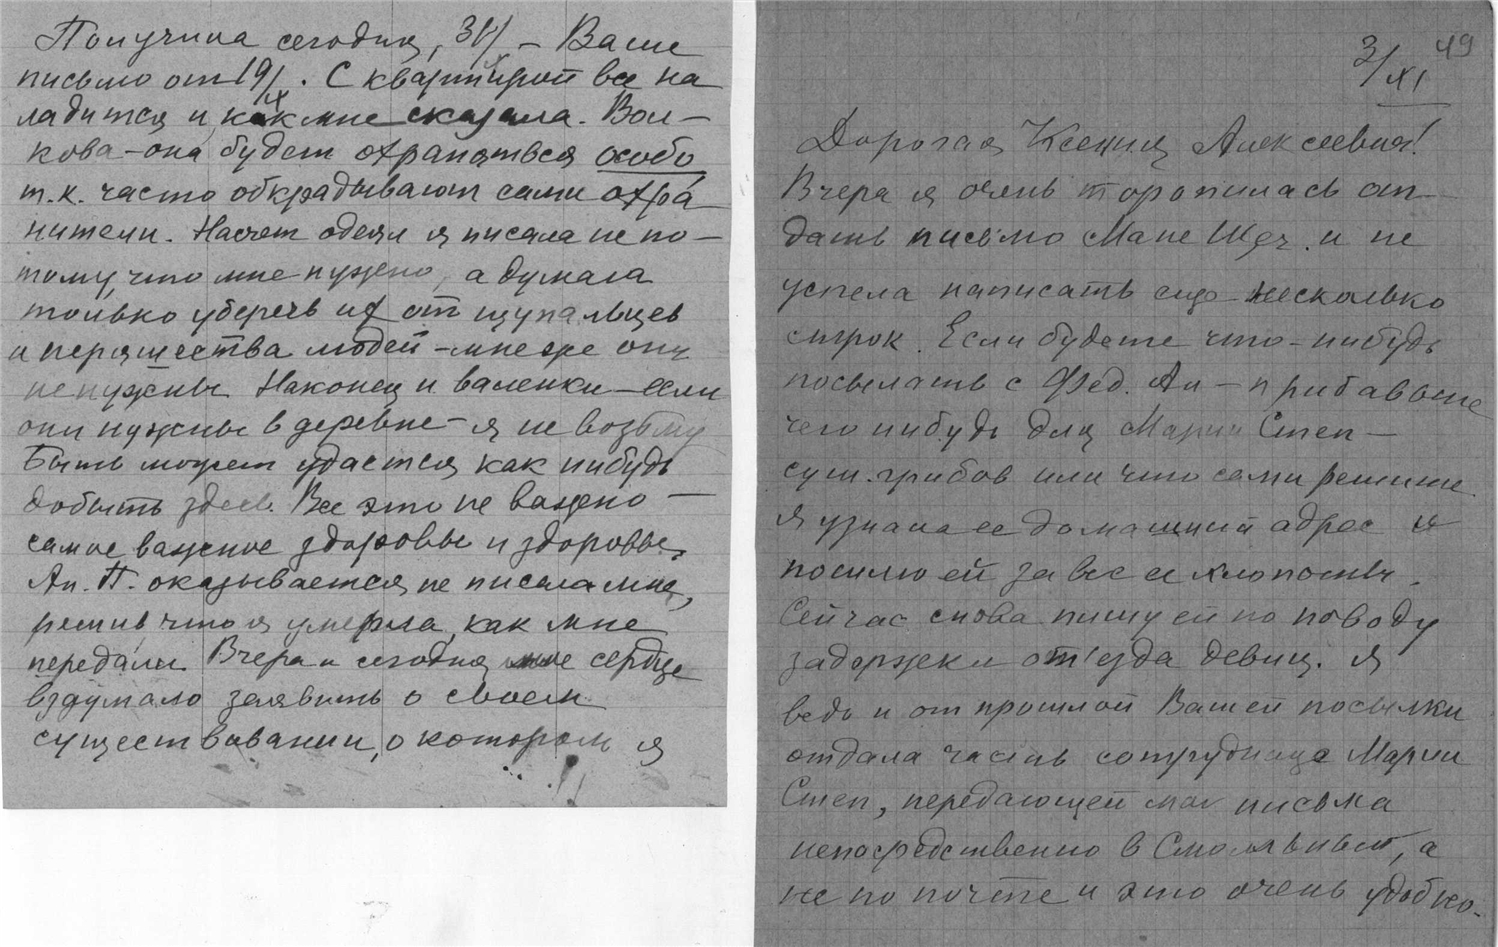 Получила сегодня, 31/ – Ваше
письмо от 19/X. С квартирой все на
ладится и, как мне сказала. Вол–
кова – она будет охраняться особо
т.к. часто обкрадывают сами охра
нители. Насчет одеял я писала не по–
тому, что мне нужно, а думала
только уберечь их от щупальцев
и неряшества людей – мне же они
не нужны. Наконец и валенки – если
они нужны в деревне – я не возьму
Быть может удастся как нибудь
добыть здесь. Все это не важно –
самое важное здоровье и здоровье.
Ан. П. оказывается не писала мне,
решив, что я умерла, как мне
передали. Вчера и сегодня мое сердце
вздумало заявить о своем
существовании, о котором я
49
3/XI
Дорогая Ксения Алексеевна!
Вчера я очень торопилась от–
дать письмо Мане и не
успела написать еще несколько
строк. Если будете что–нибудь
посылать с Фед. Ан – прибавьте
чего нибудь для Марии Степ –
суш. грибов или что сами решите.
Я узнала ее домашний адрес и
пошлю ей за все ее хлопоты.
Сейчас снова пишу ей по поводу
задержки от'езда девиц. Я
ведь и от прошлой Вашей посылки
отдала часть сотруднице Марии
Степ, передающей мои письма
непосредственно в Смоляный, а
не по почте и это очень удобно.